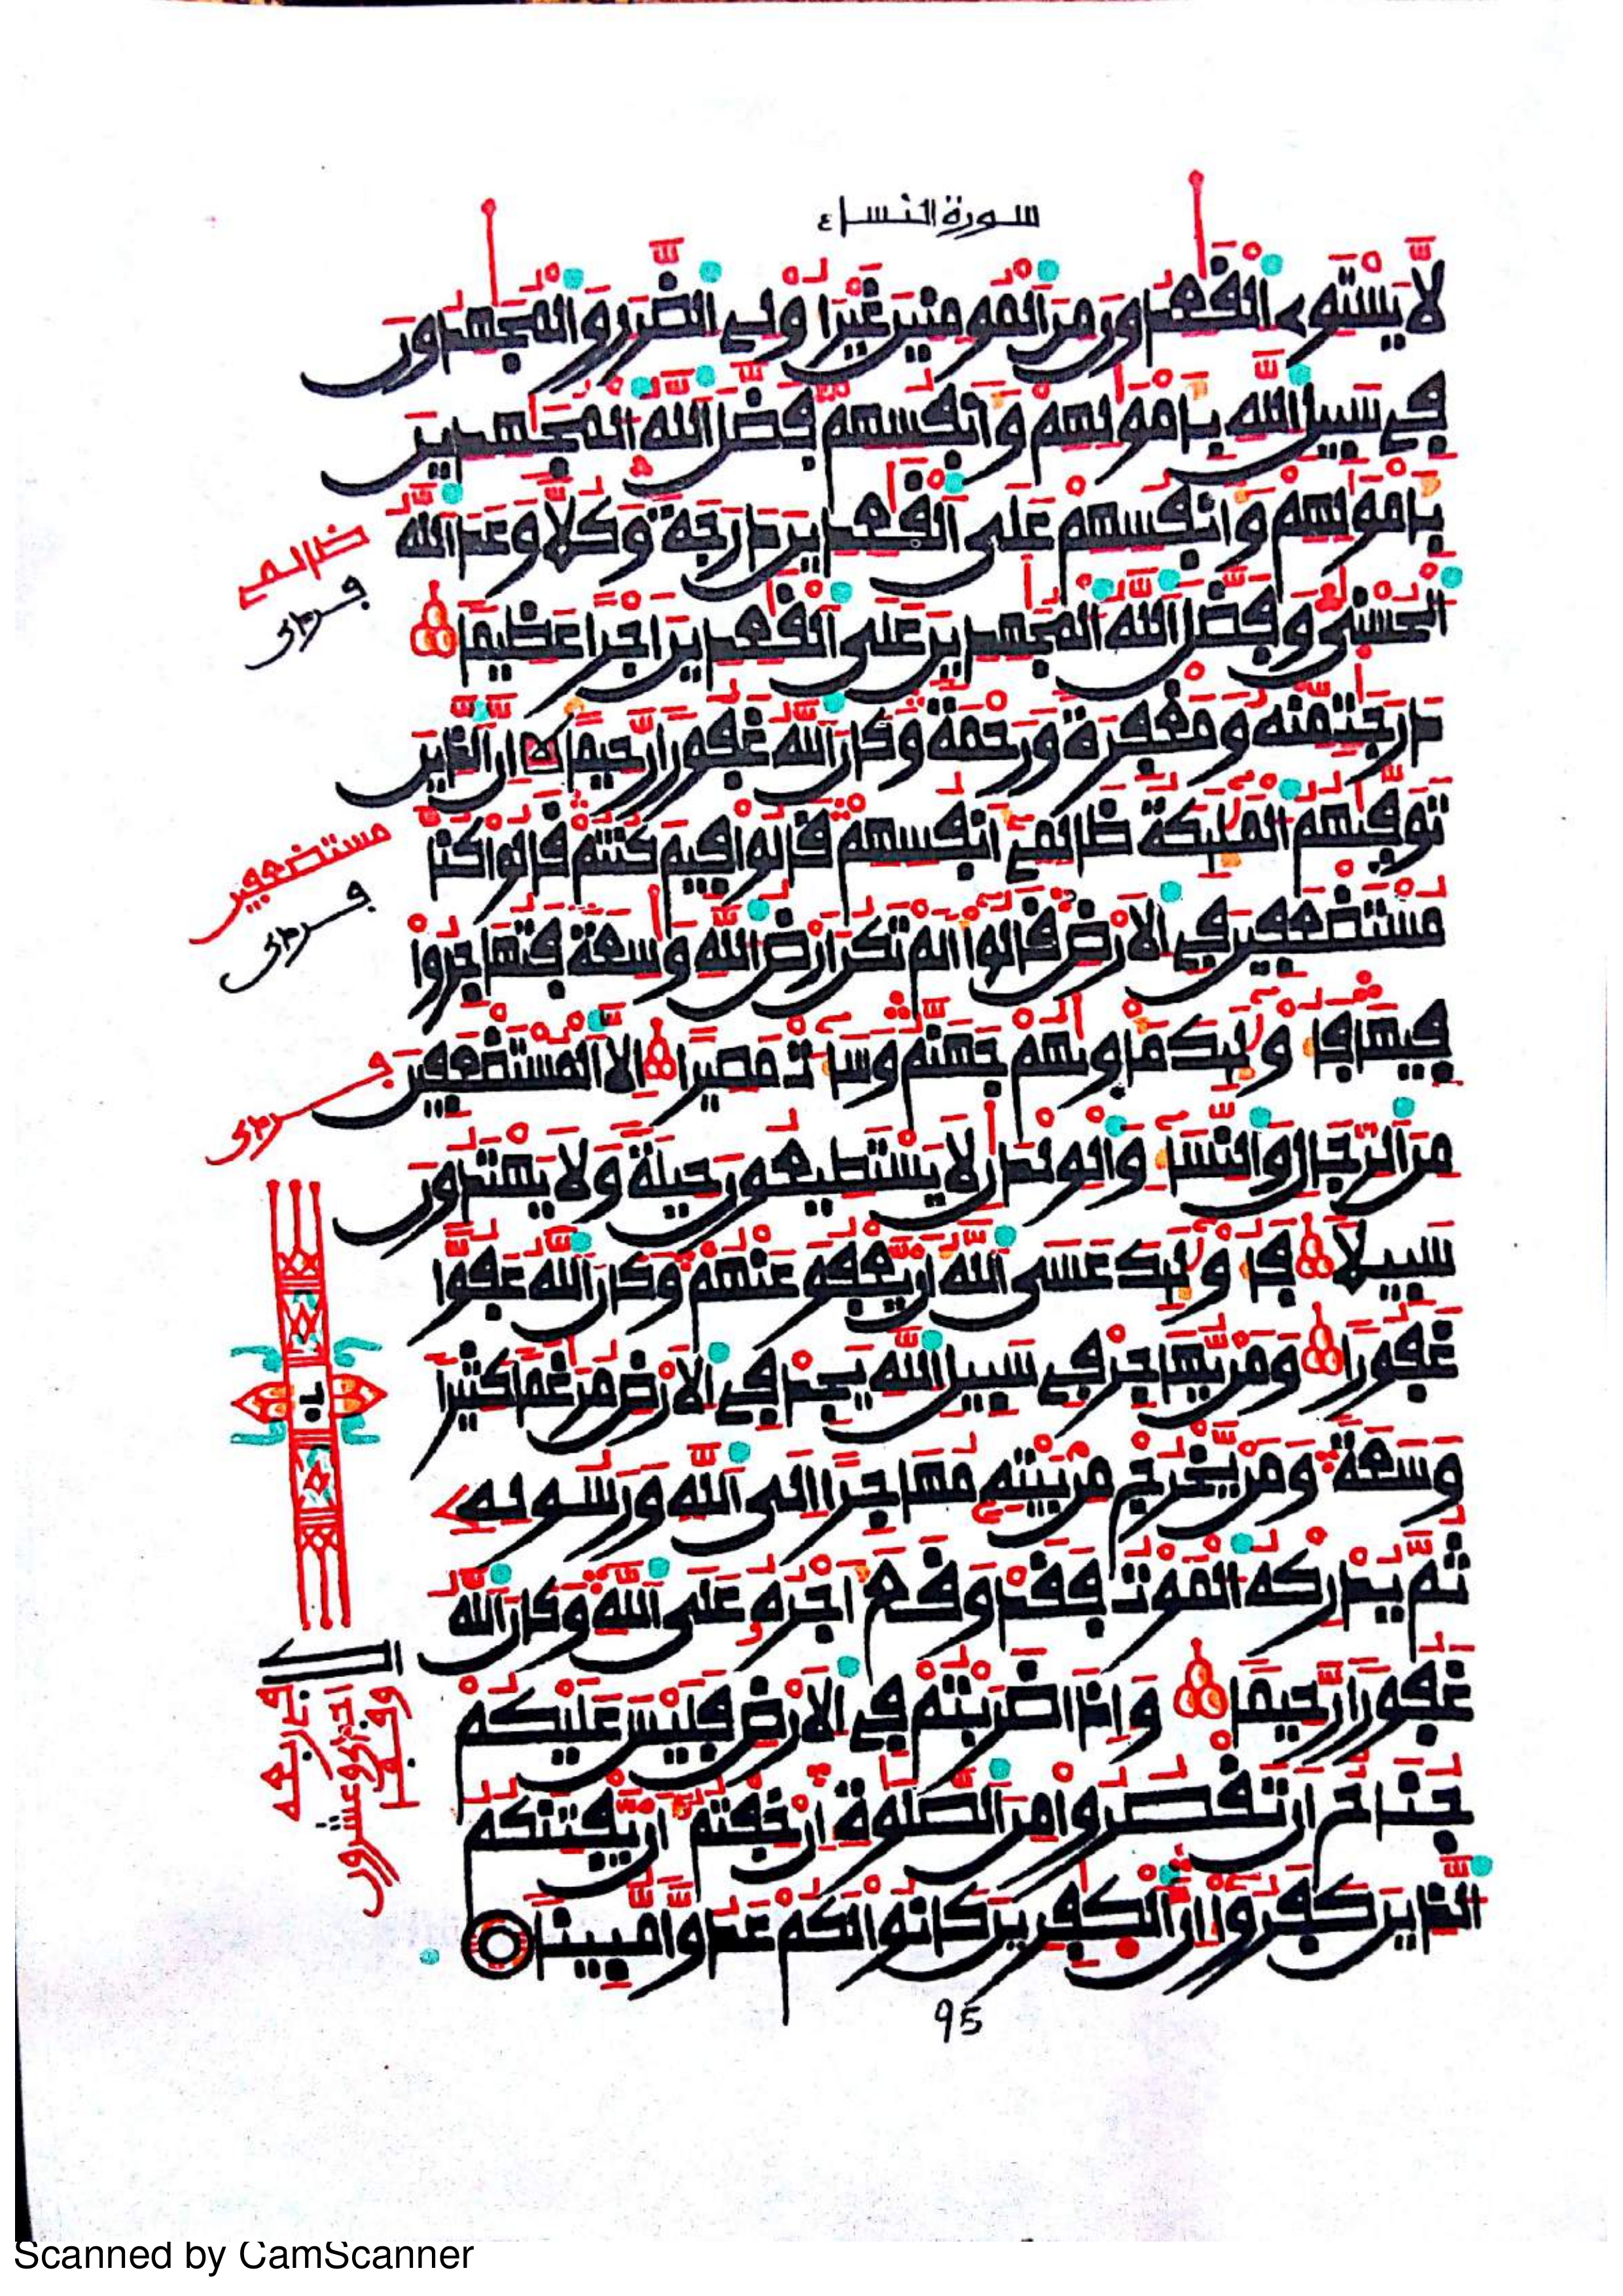 سورة النساء
لا يستوى القعدون من المومنين غير اولى الضرر والمجهدون
فى سبيل الله بامولهم وانفسهم فضل الله المجهدين
بامولهم وانفسهم على القعدين درجة وكلا وعد الله
الحسنى وفضل الله المجهدين على القعدين اجرا عظيما
درجت منه ومغفرة ورحمة وكان الله غفورا رحيما ان الذين
توفيهم المليكة ظالمى انفسهم قالوا فيم كنتم قالوا كنا
مستضعفين فى الارض قالوا الم تكن ارض الله وسعة فتهاجروا
فيها فاوليك ماويهم جهنم وساءت مصيرا الا المستضعفين
من الرجال والنساء والولدن لا يستطيعون حيلة ولا يهتدون
سبيلا فاوليك عسى الله ان يعفو عنهم وكان الله عفوا
غفورا ومن يهاجر فى سبيل الله يجد فى الارض مرغما كثيرا
وسعة ومن يخرج من بيته مهاجرا الى الله ورسوله
ثم يدركه الموت فقد وقع اجره على الله وكان الله
غفورا رحيما واذا ضربتم فى الارض فليس عليكم
جناح ان تقصروا من الصلوة ان خفتم ان يفتنكم
الذين كفروا ان الكفرين كانوا لكم عدوا مبينا
ظالمى
مستضعفين
95
Scanned by CamScanner